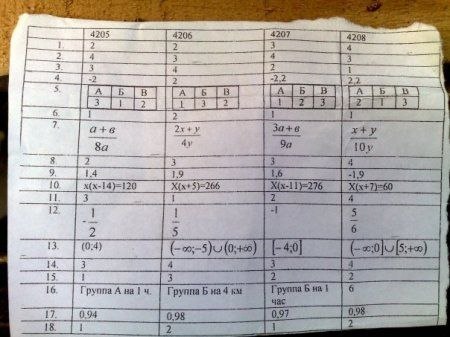 4205 4206 4207 4208
1. 2 2 3 4
2. 4 3 4 3
3. 3 4 2 1
4. -2 2 -2,2 2,2
5. А Б В А Б В А Б В А Б В
3 1 2 1 3 2 1 2 3 2 1 3
6. 1 2 1 1
7. (а + в)/(8а) (2x + y)/(4y) (3а + в)/(9а) (x + y)/(10y)
8. 2 3 3 4
9. 1,4 1,9 1,6 -1,9
10. x(x-14)=120 X(x+5)=266 X(x-11)=276 X(x+7)=60
11. 3 1 2 4
12. -1/2 1/5 -1 5/6
13. (0;4) (−∞;−5)∪(0;+∞) [−4;0] (−∞;0]∪[5;+∞)
14. 3 4 3 4
15. 1 3 2 2
16. Группа А на 1 ч. Группа Б на 4 км Группа Б на 1 час 6
17. 0,94 0,98 0,97 0,98
18. 1 2 1 2